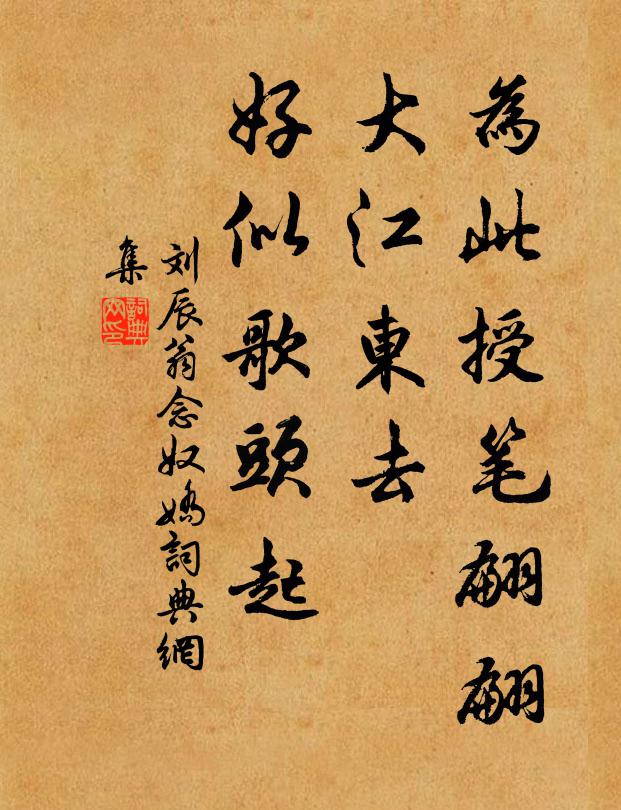 為此授笔翩翩
大江東去
好似歌頭起
刘辰翁念奴嬌詞典網
集
詞典网印